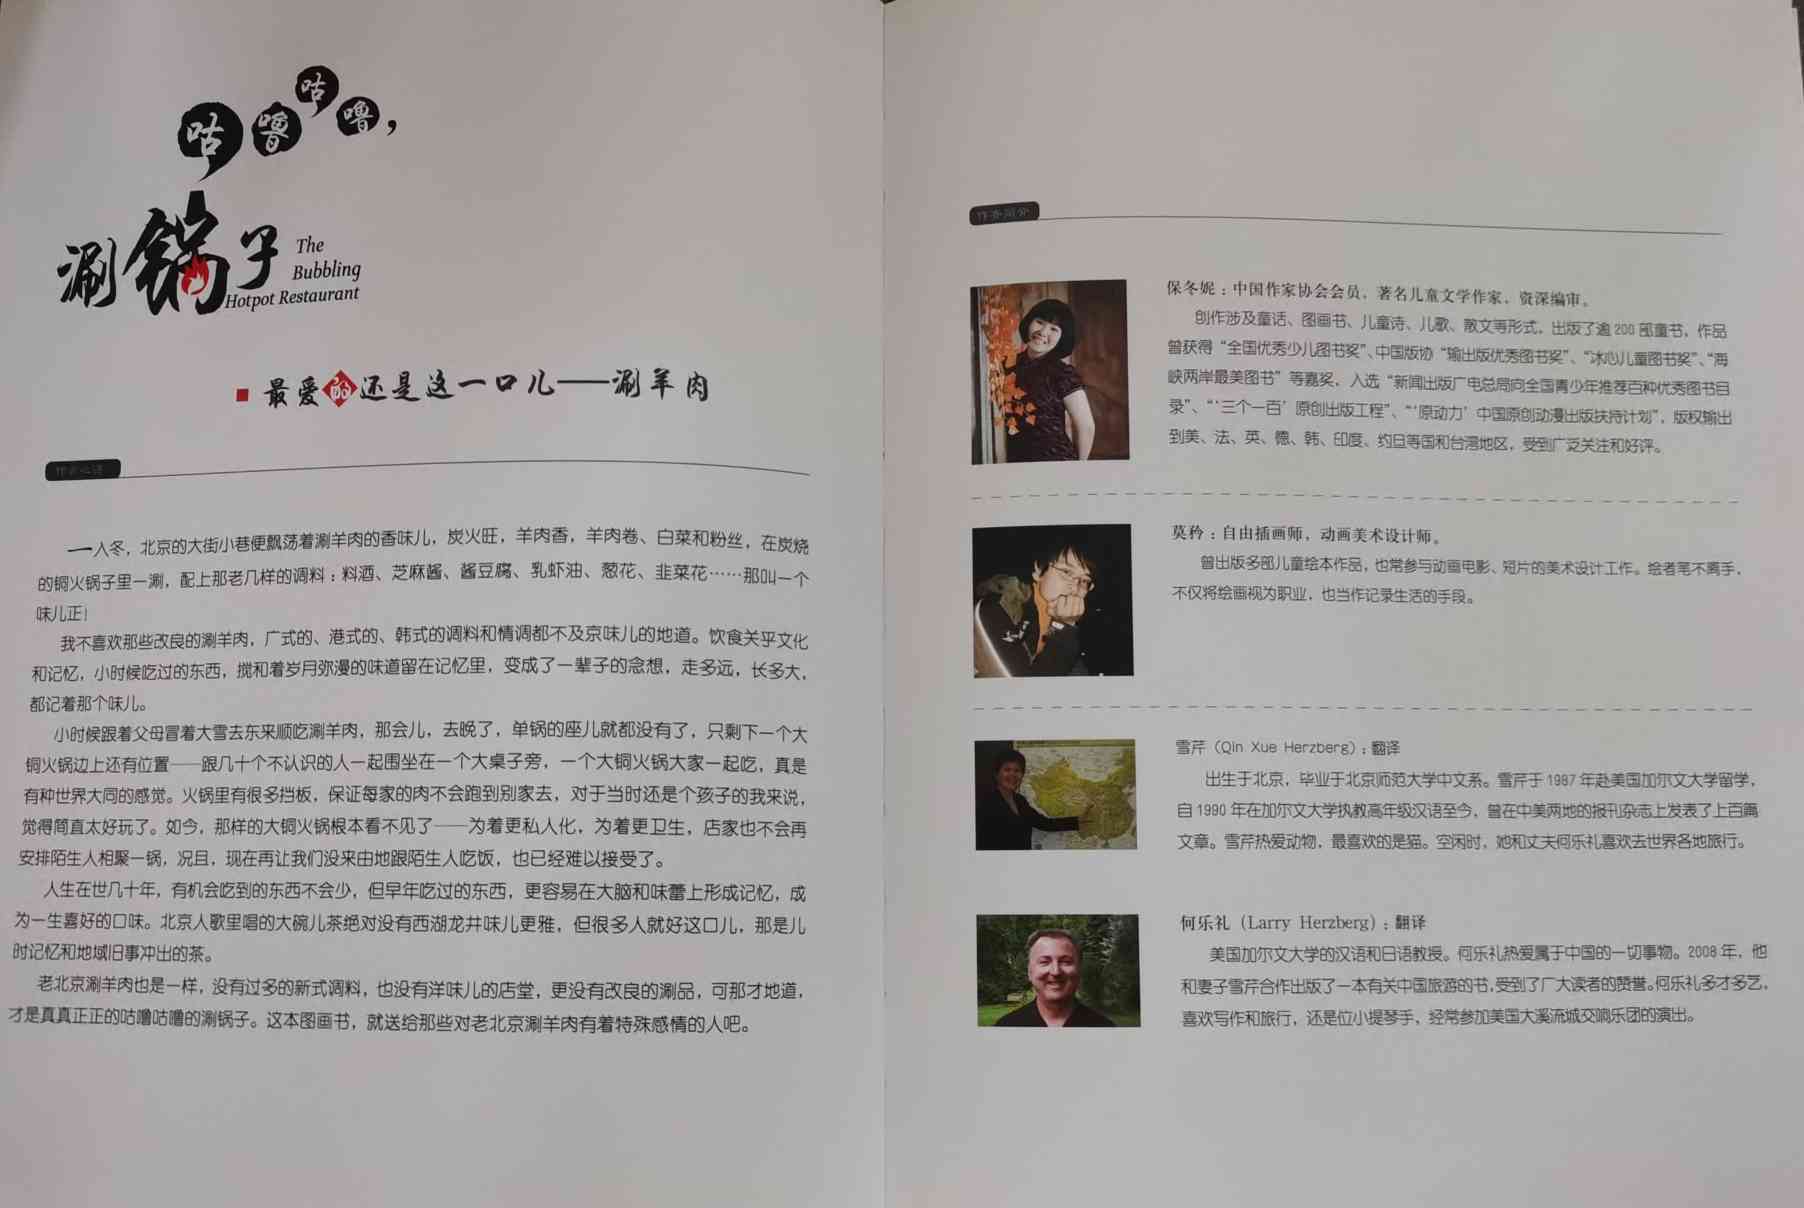 咕噜咕噜，
涮锅子
The
Bubbling
Hotpot Restaurant
最爱的还是这一口儿——涮羊肉
一入冬，北京的大街小巷便飘荡着涮羊肉的香味儿，炭火旺，羊肉香，羊肉卷、白菜和粉丝，在炭烧
的铜火锅子里一涮，配上那老几样的调料：料酒、芝麻酱、酱豆腐、乳虾油、葱花、韭菜花……那叫一个
味儿正！
我不喜欢那些改良的涮羊肉，广式的、港式的、韩式的调料和情调都不及京味儿的地道。饮食关乎文化
和记忆，小时候吃过的东西，搅和着岁月弥漫的味道留在记忆里，变成了一辈子的念想，走多远，长多大，
都记着那个味儿。
小时候跟着父母冒着大雪去东来顺吃涮羊肉，那会儿，去晚了，单锅的座儿就都没有了，只剩下一个大
铜火锅边上还有位置——跟几十个不认识的人一起围坐在一个大桌子旁，一个大铜火锅大家一起吃，真是
有种世界大同的感觉。火锅里有很多挡板，保证每家的肉不会跑到别家去，对于当时还是个孩子的我来说，
觉得简直太好玩了。如今，那样的大铜火锅根本看不见了——为着更私人化，为着更卫生，店家也不会再
安排陌生人相聚一锅，况且，现在再让我们没来由地跟陌生人吃饭，也已经难以接受了。
人生在世几十年，有机会吃到的东西不会少，但早年吃过的东西，更容易在大脑和味蕾上形成记忆，成
为一生喜好的口味。北京人歌里唱的大碗儿茶绝对没有西湖龙井味儿更雅，但很多人就好这口儿，那是儿
时记忆和地域旧事冲出的茶。
老北京涮羊肉也是一样，没有过多的新式调料，也没有洋味儿的店堂，更没有改良的涮品，可那才地道，
才是真真正正的咕噜咕噜的涮锅子。这本图画书，就送给那些对老北京涮羊肉有着特殊感情的人吧。
作者简介
保冬妮：中国作家协会会员，著名儿童文学作家，资深编审。
创作涉及童话、图画书、儿童诗、儿歌、散文等形式，出版了逾200部童书，作品
曾获得“全国优秀少儿图书奖”、中国版协“输出版优秀图书奖”、“冰心儿童图书奖”、“海
峡两岸最美图书”等嘉奖，入选“新闻出版广电总局向全国青少年推荐百种优秀图书目
录”、“‘三个一百’原创出版工程”、“‘原动力’中国原创动漫出版扶持计划”，版权输出
到美、法、英、德、韩、印度、约旦等国和台湾地区，受到广泛关注和好评。
莫矜：自由插画师，动画美术设计师。
曾出版多部儿童绘本作品，也常参与动画电影、短片的美术设计工作。绘者笔不离手，
不仅将绘画视为职业，也当作记录生活的手段。
雪芹（Qin Xue Herzberg）：翻译
出生于北京，毕业于北京师范大学中文系。雪芹于1987年赴美国加尔文大学留学，
自1990年在加尔文大学执教高年级汉语至今，曾在中美两地的报刊杂志上发表了上百篇
文章。雪芹热爱动物，最喜欢的是猫。空闲时，她和丈夫何乐礼喜欢去世界各地旅行。
何乐礼（Larry Herzberg）：翻译
美国加尔文大学的汉语和日语教授。何乐礼热爱属于中国的一切事物。2008年，他
和妻子雪芹合作出版了一本有关中国旅游的书，受到了广大读者的赞誉。何乐礼多才多艺，
喜欢写作和旅行，还是位小提琴手，经常参加美国大溪流城交响乐团的演出。